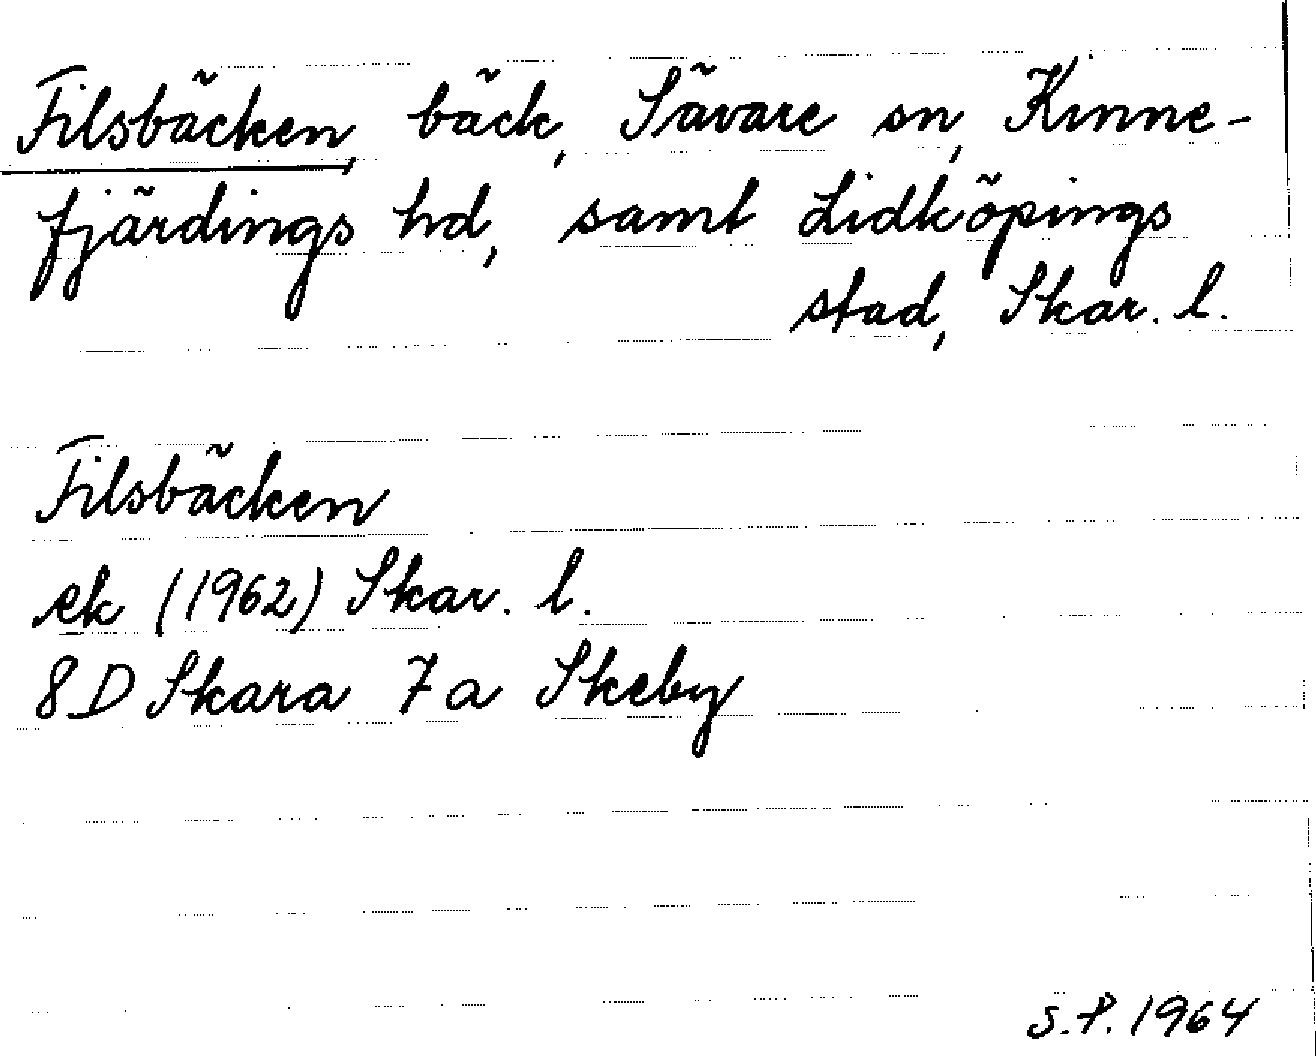 Filsbäcken, bäck, Sävare sn, Kinne-
fjärdings hd, samt Lidköpings
stad, Skar. l.
Filsbäcken
ek (1962) Skar. l.
8 D Skara 7 a Skeby
S.P. 1964